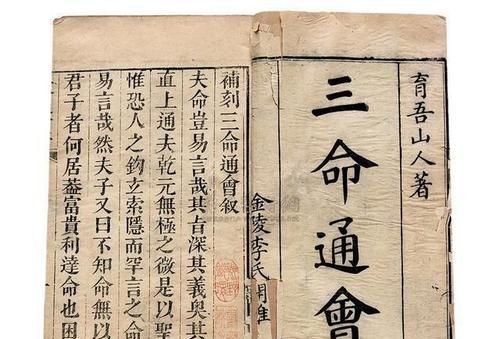 育吾山人著
三命通會
金陵李氏
補刻三命通會叙
夫命豈易言哉其旨深其義奥其
直上通夫乾元無極之微是以聖
惟恐人之鉤玄索隱而罕言之命
易言哉然夫子又曰不知命無以
君子者何居葢富貴利達命也困